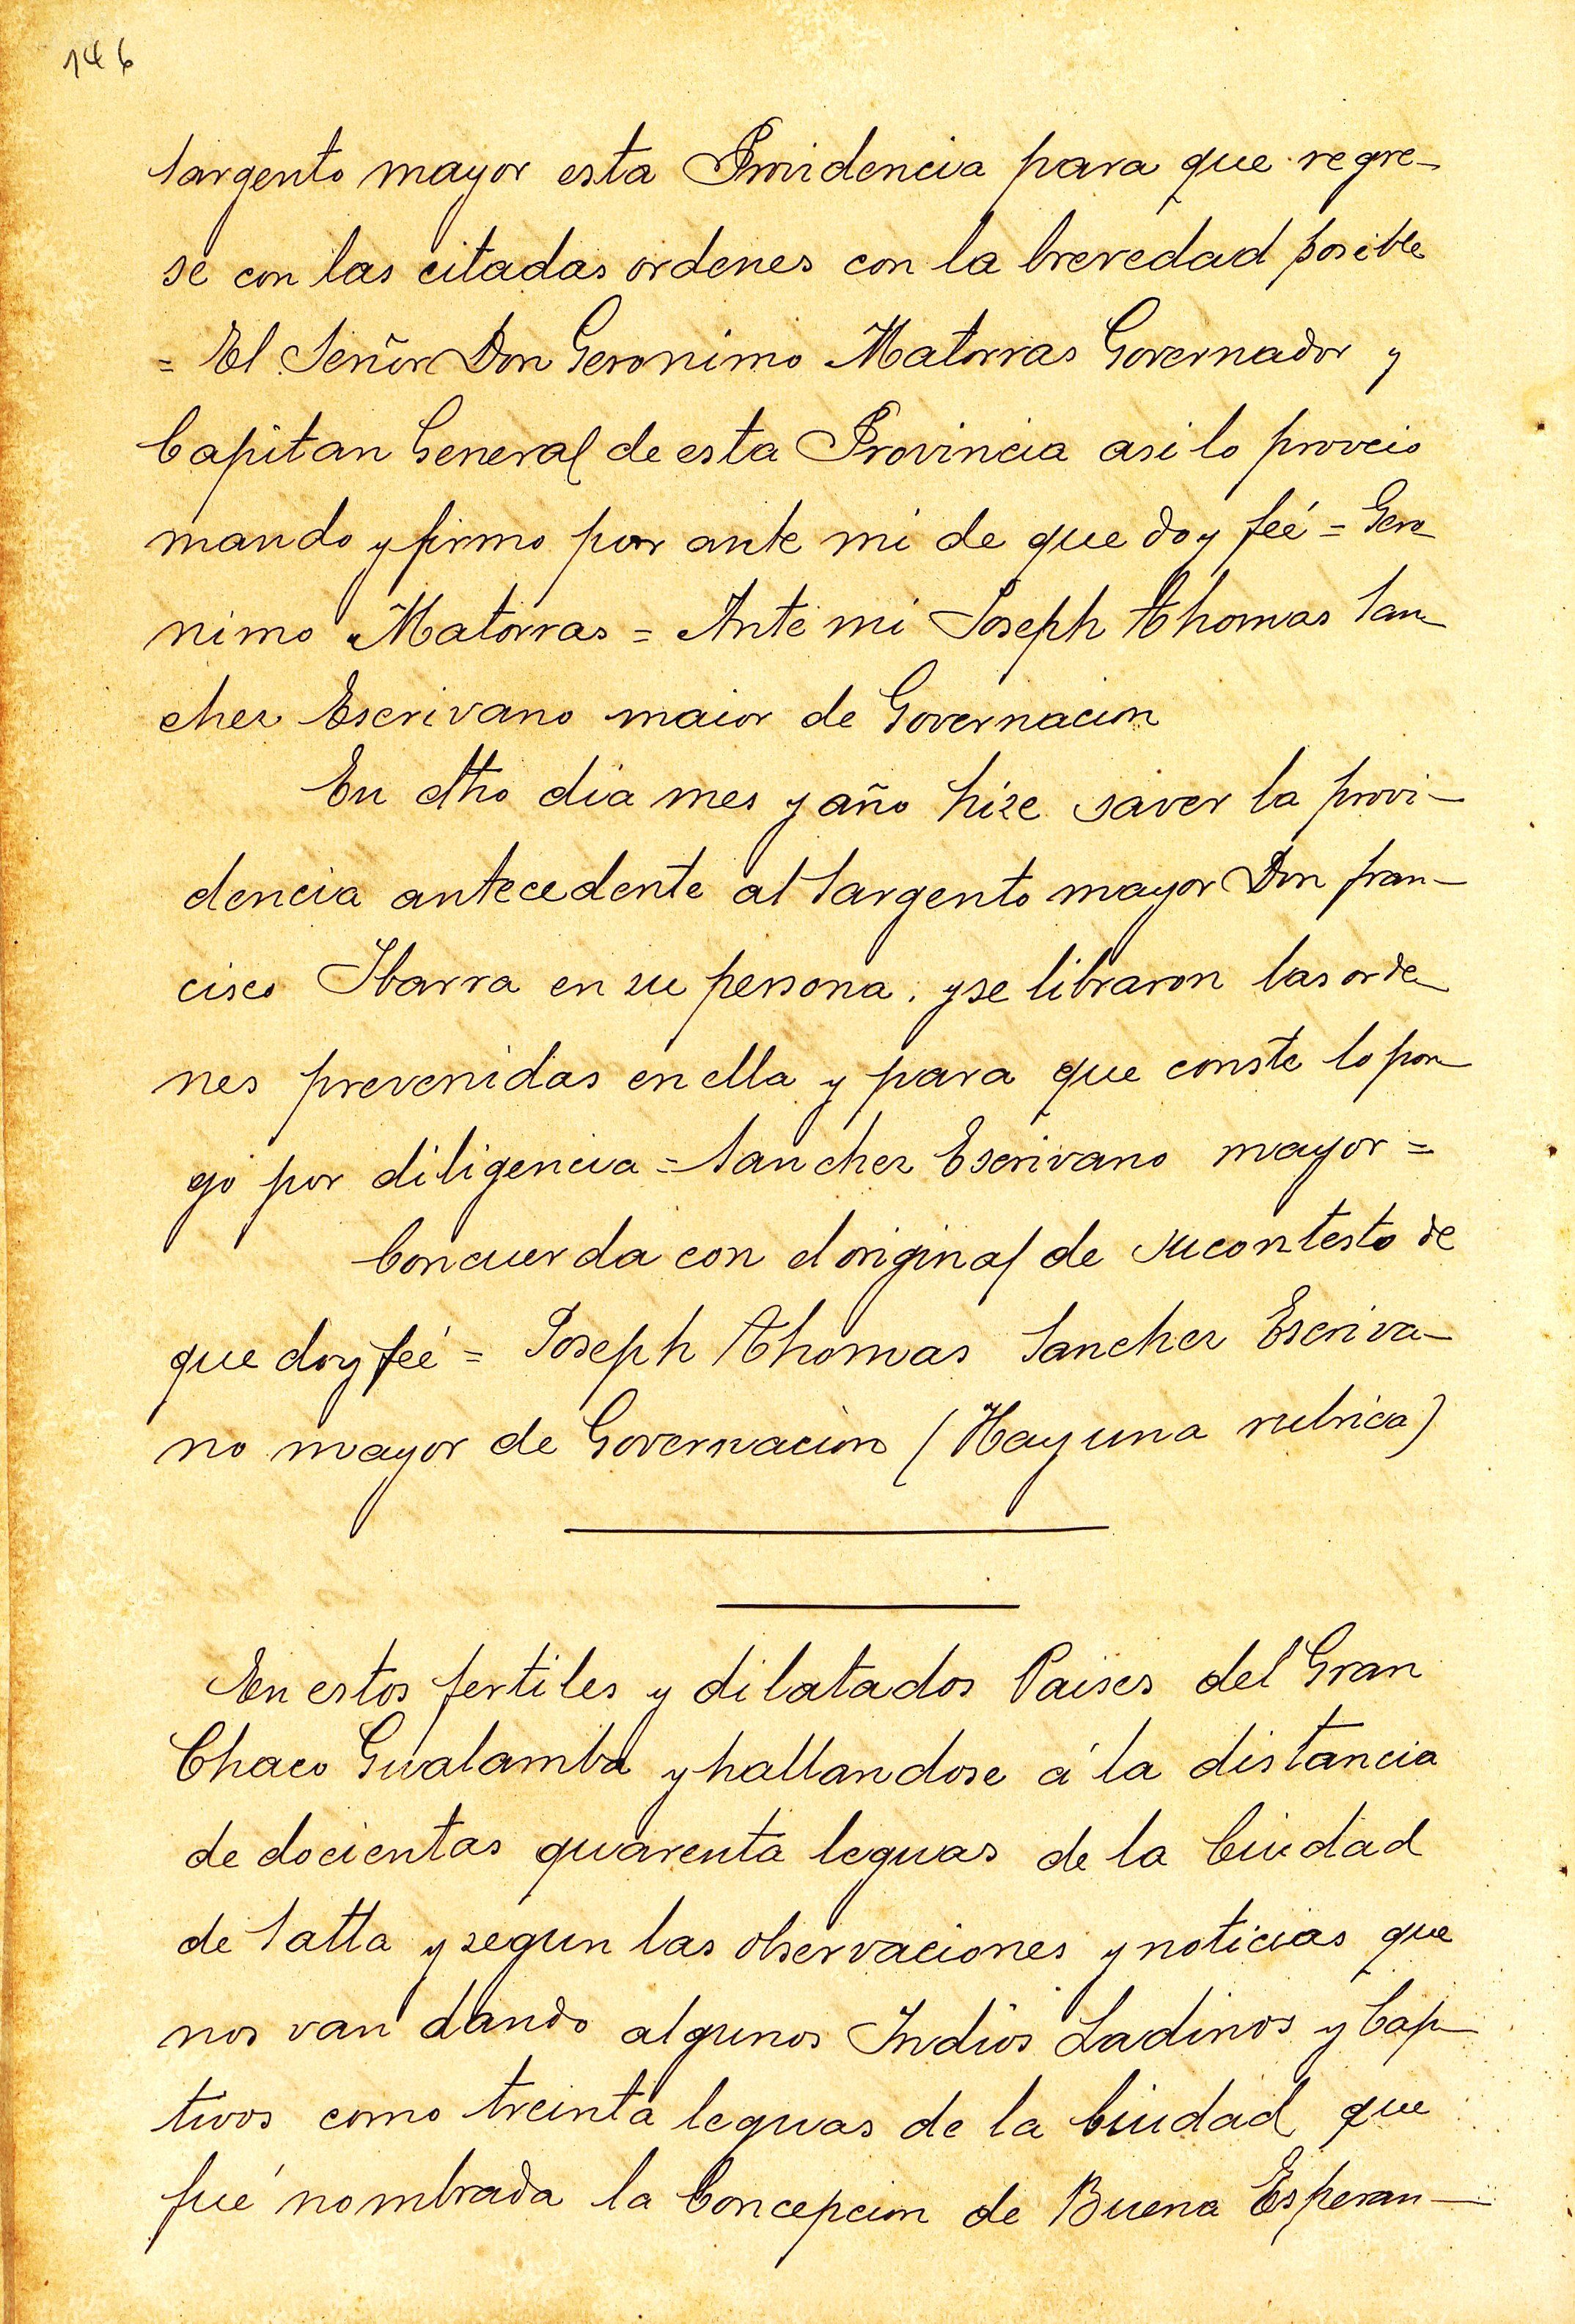 146
Sargento mayor esta Providencia para que regre-
se con las citadas ordenes con la brevedad posible
= El Señor Don Geronimo Matorras Governador y
Capitan General de esta Provincia asi lo proveio
mando y firmo por ante mi de que doy feé = Gero-
nimo Matorras = Ante mi Joseph Thomas San-
chez Escrivano maior de Governacion
En dho dia mes y año hize saver la provi-
dencia antecedente al Sargento mayor Don fran-
cisco Ibarra en su persona, y se libraron las orde-
nes prevenidas en ella y para que conste lo pon-
go por diligencia = Sanchez Escrivano mayor =
Concuerda con el original de su contesto de
que doy feé = Joseph Thomas Sanchez Escriva-
no mayor de Governacion (Hay una rubrica)
En estos fertiles y dilatados Paises del Gran
Chaco Gualamba y hallandose á la distancia
de docientas quarenta leguas de la Ciudad
de Salta y segun las observaciones y noticias que
nos van dando algunos Indios Ladinos y Cap-
tivos como treinta leguas de la Ciudad que
fué nombrada la Concepcion de Buena Esperan-